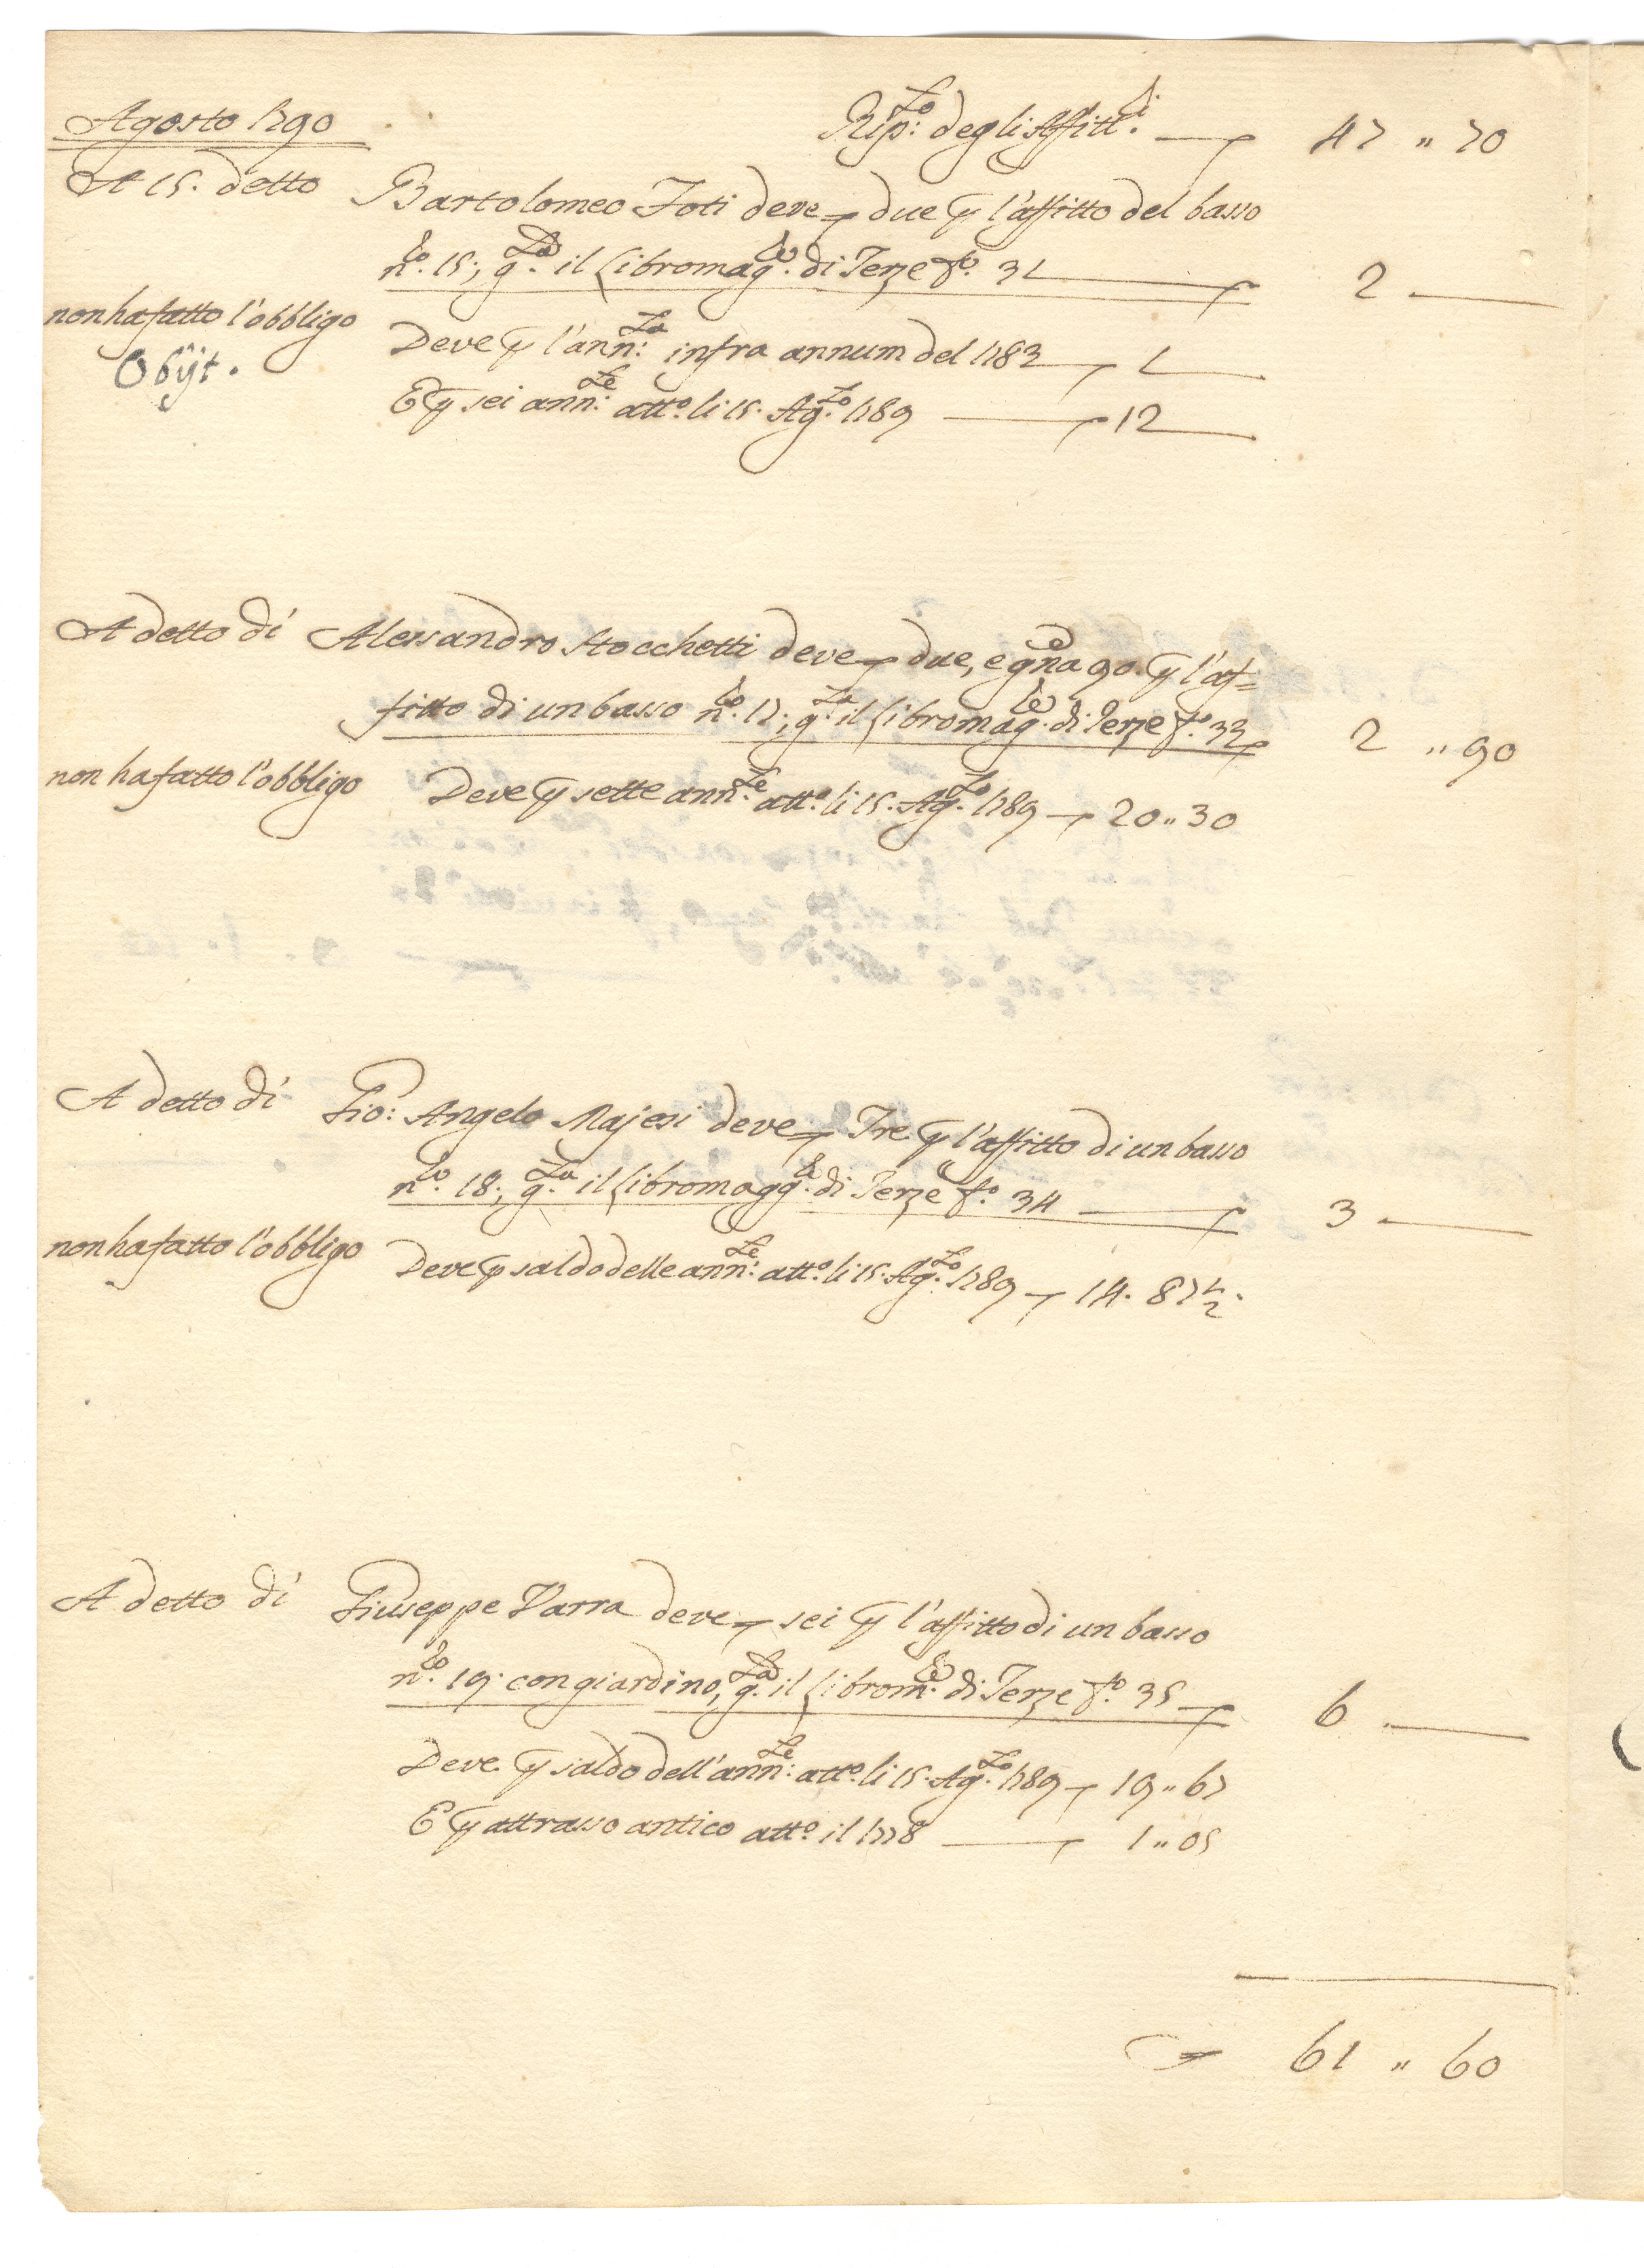 Agosto 1790
Rip:to degli Affitt:i 47 " 70
A 15. detto Bartolomeo Foti deve due p l'affitto del basso
n:o 15; g:ta il Libro mag:e di Terze fo. 31 2
non ha fatto l'obbligo Deve p l'ann:ta infra annum del 1783 1
Obijt. E p sei ann:te atto. li 15. Ag:to 1789 12
A detto dì Alessandro Stocchetti deve due, e gna 90. p l'af=
fitto di un basso n:o 17; g:ta il Libro mag:e di Terze fo. 33 2 " 90
non ha fatto l'obbligo Deve p sette ann:te atto. li 15. Ag:to 1789 20 " 30
A detto dì Gio: Angelo Majesi deve Tre p l'affitto di un basso
n:o 18; g:ta il Libro magg:e di Terze fo. 34 3
non ha fatto l'obbligo Deve p saldo delle ann:te atto. li 15. Ag:to 1789 14. 87 1/2.
A detto dì Giuseppe Varra deve sei p l'affitto di un basso
n:o 19. con giardino, g:ta il Libro m:e di Terze fo. 35 6
Deve p saldo dell'ann:te atto. li 15. Ag:to 1789 19 " 67
E p attrasso antico atto. il 1778 1 " 05
61 " 60